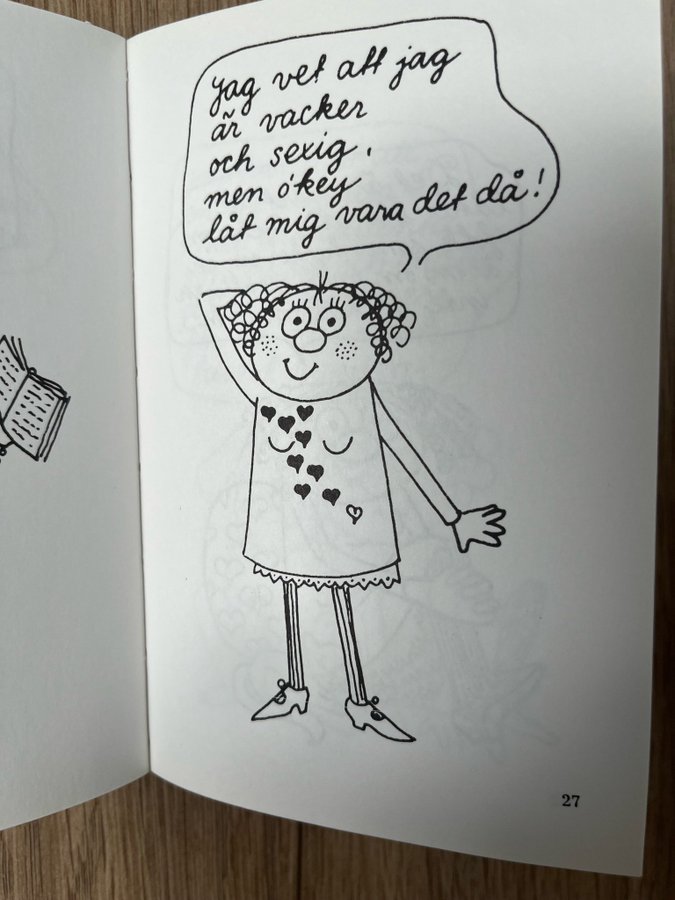 Jag vet att jag
är vacker
och sexig,
men o'key
låt mig vara det då!
27